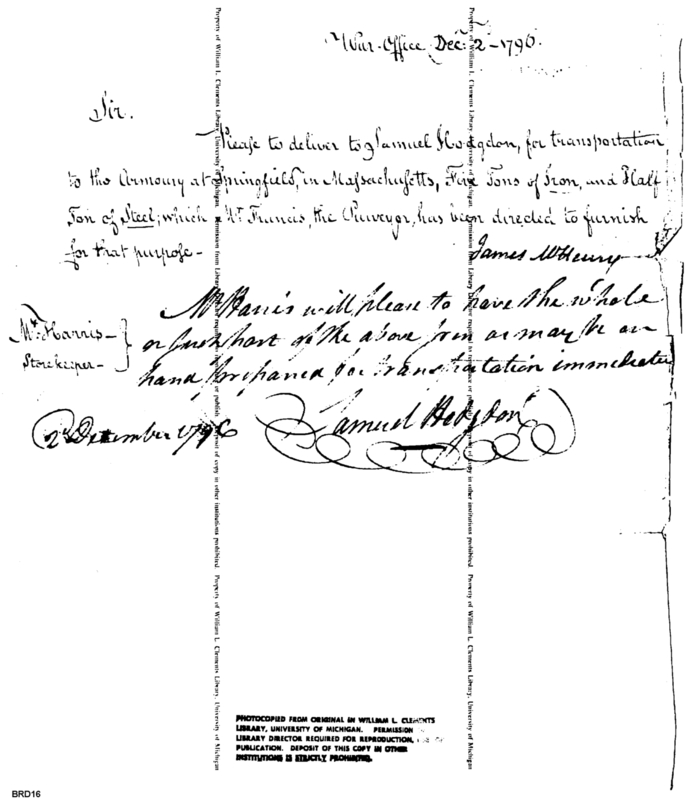 War-Office Decr. 2d-1796.
Sir.
Please to deliver to Samuel Hodgdon, for transportation
to the Armoury at Springfield, in Massachusetts, Five Tons of Iron, and Half
Ton of Steel; which Mr. Francis, the Purveyor, has been directed to furnish
for that purpose-
James McHenry
Mr Harris-
Storekeeper-
Mr Harris will please to have the whole
or such part of the above Iron as may be on
hand prepared for transportation immediately
2d December 1796
Samuel Hodgdon
Property of William L. Clements Library, University of Michigan.
Property of William L. Clements Library, University of Michigan
of copy in other institutions prohibited. Property of William L. Clements Library, University of Michigan
PHOTOCOPIED FROM ORIGINAL IN WILLIAM L. CLEMENTS
LIBRARY, UNIVERSITY OF MICHIGAN. PERMISSION
LIBRARY DIRECTOR REQUIRED FOR REPRODUCTION,
PUBLICATION. DEPOSIT OF THIS COPY IN OTHER
INSTITUTIONS IS STRICTLY PROHIBITED.
BRD16